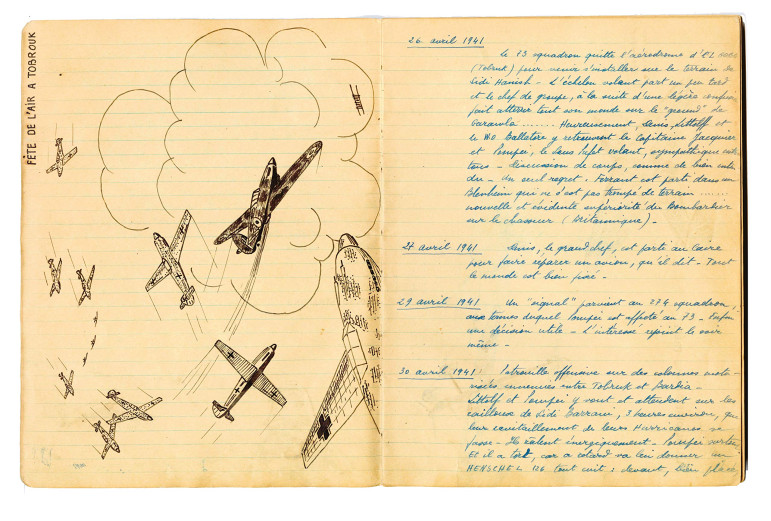 FÊTE DE L'AIR A TOBROUK
26 avril 1941
Le 73 squadron quitte l'aérodrome d'EL
(Tobruk) pour venir s'installer sur le terrain de
Sidi Hanish - L'échelon volant part un peu tard
et le chef de groupe, à la suite d'une légère confusion
fait atterrir tout son monde sur le "ground" de
Garawla ........ Heureusement, Denis, Littolff et
le W.O. Ballatore y retrouvent le Capitaine Jacquier
et Pompéi, le sans sept volant, sympathique
- discussion de coups, comme de bien enten
du - Un seul regret - Ferrant est parti dans un
Blenheim qui ne s'est pas trompé de terrain .......
nouvelle et évidente infériorité du Bombardier
sur le chasseur (Britannique) -
27 avril 1941 Denis, le grand chef, est parti au Caire
pour faire réparer un avion, qu'il dit - Tout
le monde est bien posé -
29 avril 1941 Un "signal" parvient au 274 squadron,
aux termes duquel Pompéi est affecté au 73 - Enfin
une décision utile - L'intéressé rejoint le soir
même -
30 avril 1941 Patrouille offensive sur des colonnes moto-
risées ennemies entre Tobruk et Bardia -
Littolff et Pompéi y vont et attendent sur les
cailloux de Sidi Barrani, 3 heures environ, que
leur ravitaillement de leurs Hurricanes se
fasse - Ils râlent énergiquement - Pompéi
Et il a tort, car a va lui donner un
HENSCHEL 126 tout cuit : devant, bien placé